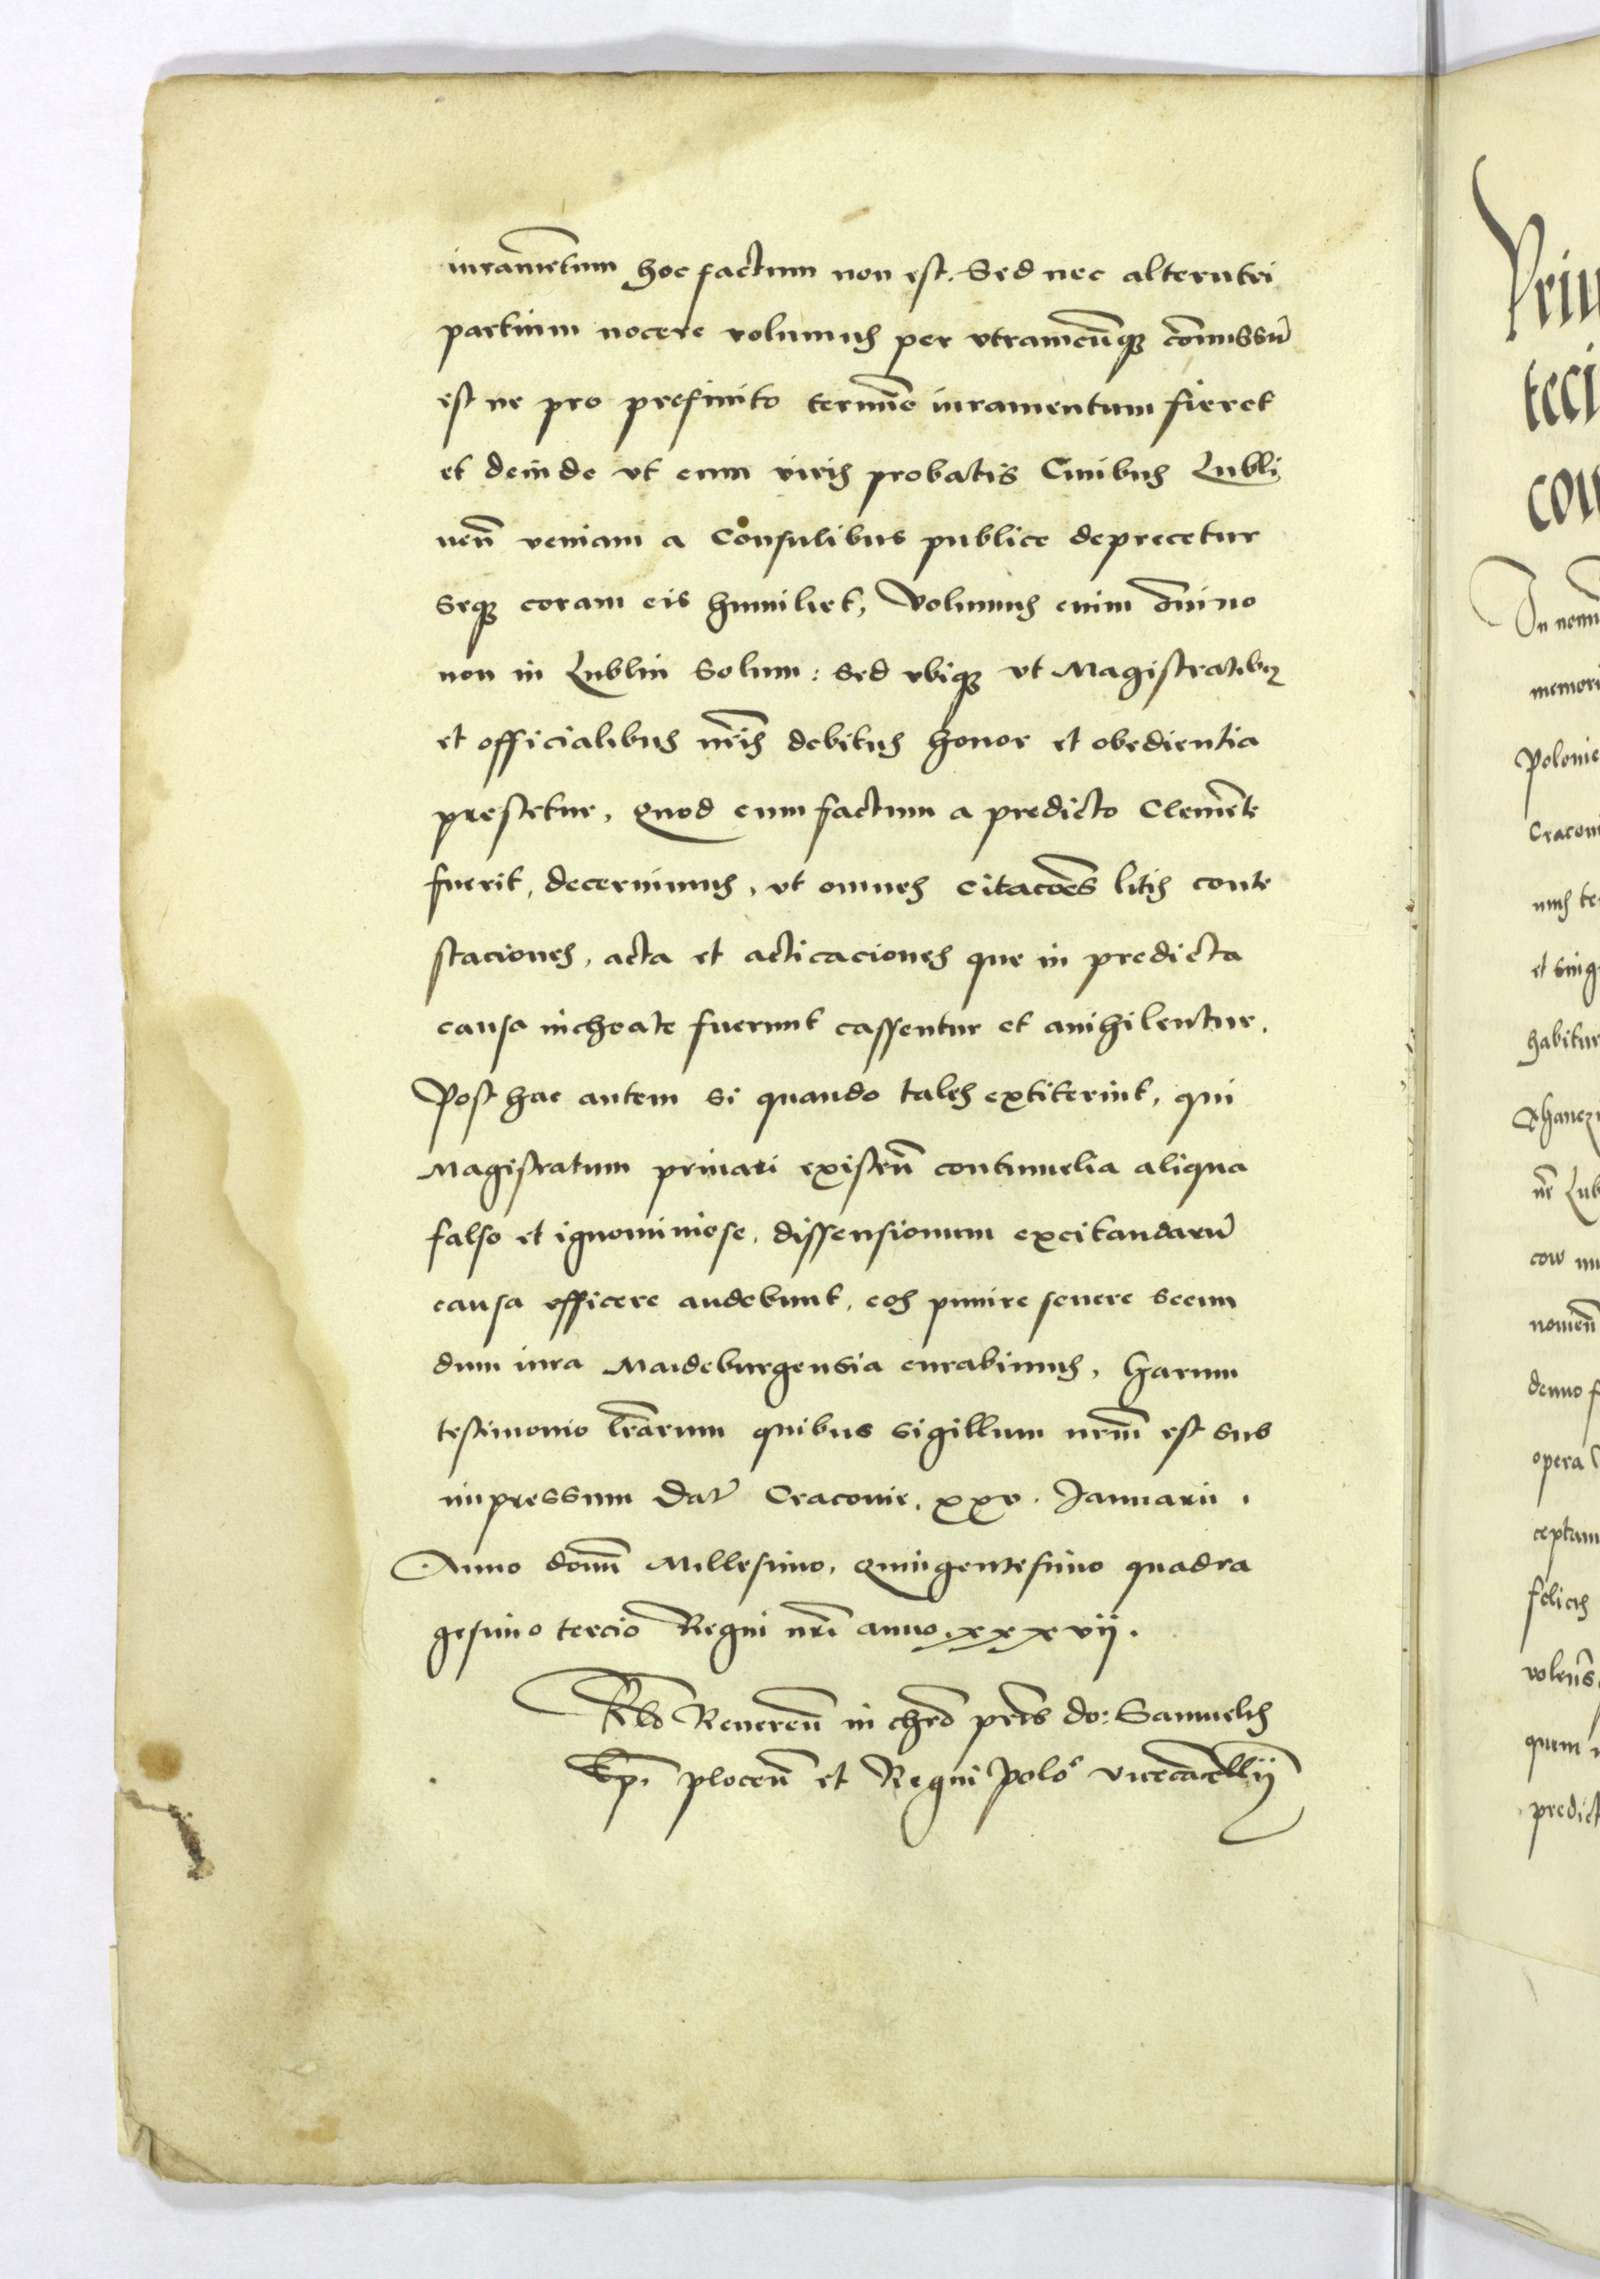 iuramētum hoc factum non est. Sed nec alterutri
partium nocere volumus per vtramcūq3 cōmissū
est ne pro prefinito termīo iuramentum fieret
et deinde vt cum viris probatis Ciuibus Lubli
neñ veniam a Consulibus publice deprecetur
Seq3 coram eis humiliet, Volumus enim ōnino
non in Lublin Solum: Sed vbiq3 vt Magistratibus
et officialibus nr̄is debitus honor et obedientia
prestetur, Quod cum factum a predicto Clemēte
fuerit, decernimus, vt omnes citacōes litis conte
staciones, acta et acticaciones que in predicta
causa inchoate fuerunt cassentur et anihilentur.
Post hac autem si quando tales extiterint, qui
Magistratum priuati existeñ contumelia aliqua
falso et ignominiose, dissensionum excitandarū
causa efficere audebunt, eos punire seuere secun
dum iura Maideburgensia curabimus, Harum
testimonio lr̄arum quibus sigillum nrm̄ est sub
impressum Dat̄ Cracouie, xxv. Januarii.
Anno domī Millesimo, Quingentesimo quadra
gesimo tercio Regni nr̄i anno. xxxvii.
Rlo Reuereñ in chr̄o pr̄is do: Samuelis
Ep̄i ploceñ et Regni Polo: vicecācellij
Priu
teci
cow
In nomi
memori
Polonie
Cracoui
et sing
habitur
cow
nomeñ
denuo f
opera
ceptam
felicis
volens
quem
predict